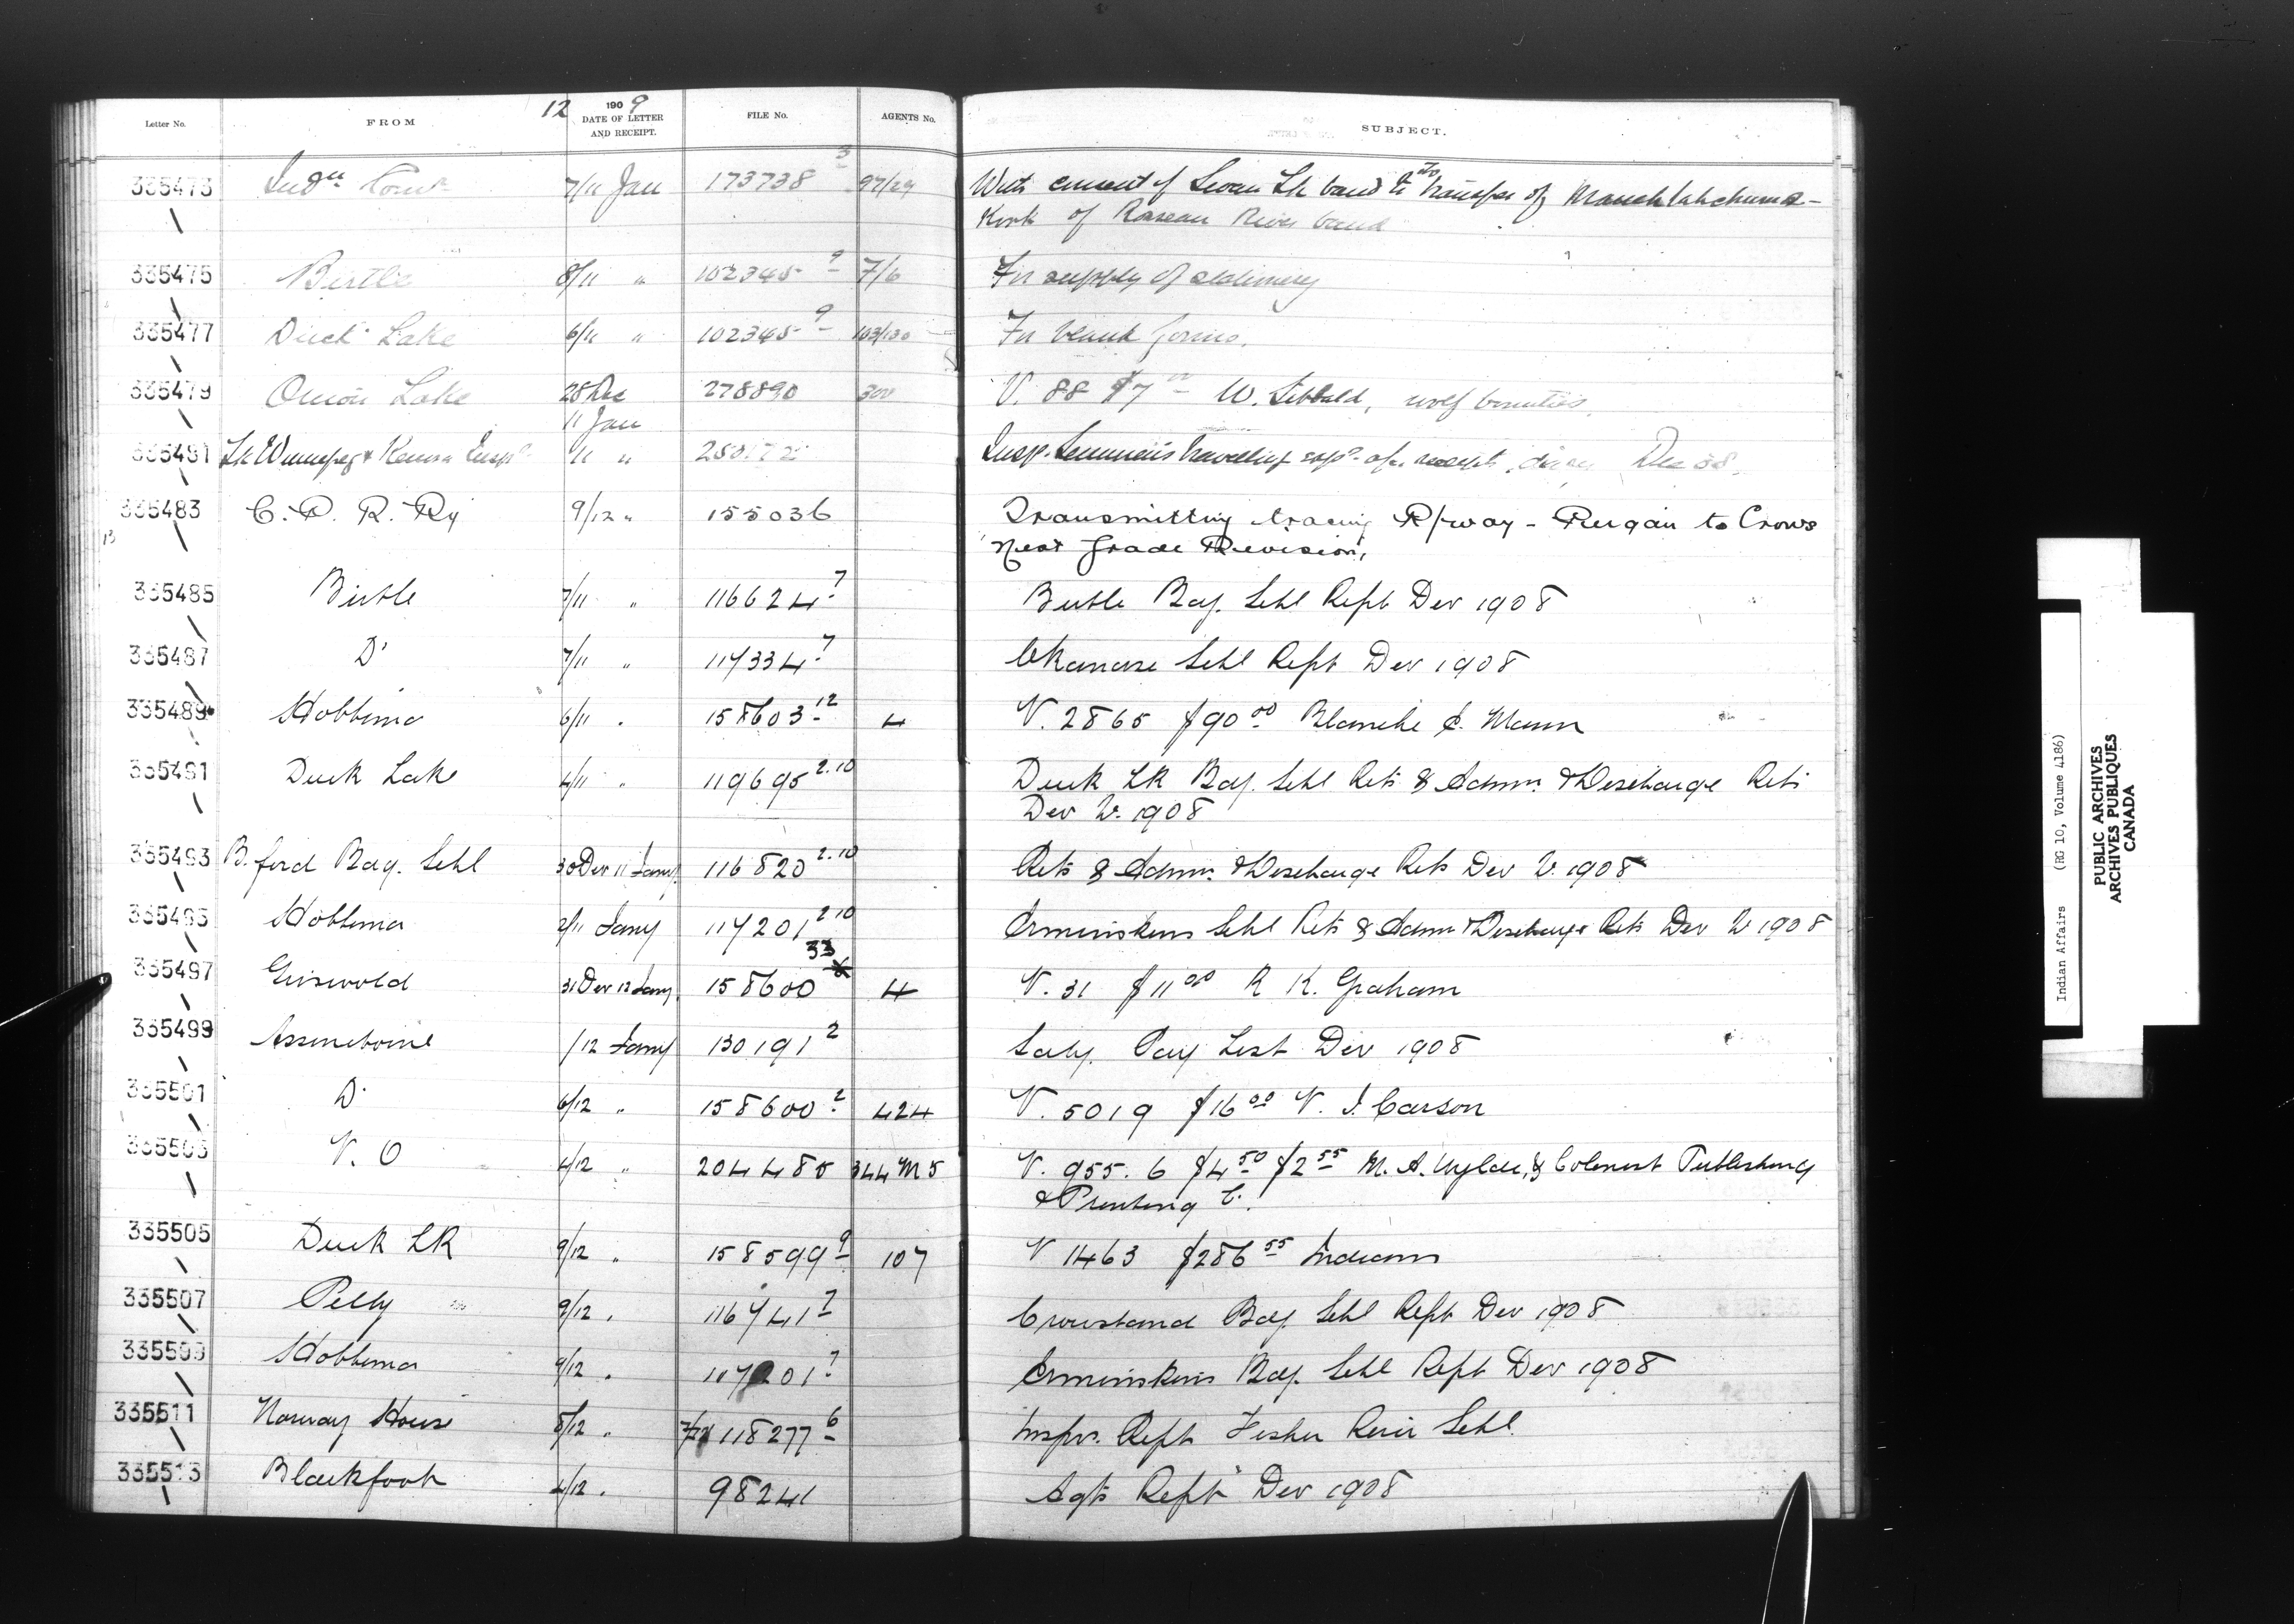 12 1909
Letter No. FROM DATE OF LETTER AND RECEIPT. FILE No. AGENTS No. SUBJECT.
335473 Indn Comr 7/11 Jan 173738 3 97/29 With consent of Swan Lk band to transfer of
of Roseau River band
335475 Birtle 8/11 " 102345 9 7/6 For supply of stationery
335477 Duck Lake 6/11 " 102345 9 103/130 For blank forms.
335479 Onion Lake 28 Dec 278890 300 V. 88 $7 00 W. Sibbald, wolf bounties.
11 Jan
335481 Lk Winnipeg & Kenora Insp 11 " Insp. travelling Dec 08.
335483 C. P. R. Ry 9/12 " 155036 Transmitting tracing R/way - to Crows
13 Nest Grade Revision.
335485 Birtle 7/11 " 116624 7 Birtle Bdg. Schl Rept Der 1908
335487 Do 7/11 " 117334 7 Okanase Schl Rept Der 1908
335489 Hobbema 6/11 . 158603 12 4 V. 2865 $90 00 Blanche E. Mann
335491 Duck Lake 4/11 " 119695 2.10 Duck LK Bdg. Schl Rets & Admn. & Discharge Rets
Der 2. 1908
335493 B. ford Bdg. Schl 30 Der 11 Jany. 116820 2.10 Rets & Admn. & Discharge Rets Der 2. 1908
335495 Hobbema 2/11 Jany 117201 2.10 Ermineskins Schl Rets & Admn & Discharge Rets Der 2 1908
335497 Griswold 31 Der 12 Jany. 158600 33 4 V. 31 $11 00 R K. Graham
335499 Assineboine /12 Jany 130191 2 Saly. Pay List Der 1908
335501 Do 6/12 " 158600 2 424 V. 5019 $16 00 N. J. Carson
335503 V. O 4/12 " 204485 344 M5 V. 955. 6 $4 50 $2 55 M. A. Wylde, & Colonist Publishing
& Printing C.
335505 Duck LK 9/12 " 158599 9 107 V 1463 $286 55 Indians
335507 Pelly 9/12 . 116741 7 Crowstand Bdg. Schl Rept Der 1908
335509 Hobbema 9/12 . 117201 7 Ermineskins Bdg. Schl Rept Der 1908
335511 Norway House 8/12 . 118277 6 Inspr. Rept Fisher River Schl.
335513 Blackfoot 4/12 . 98241 Agts Rept Der 1908
Indian Affairs (RG 10, Volume 4186)
PUBLIC ARCHIVES
ARCHIVES PUBLIQUES
CANADA